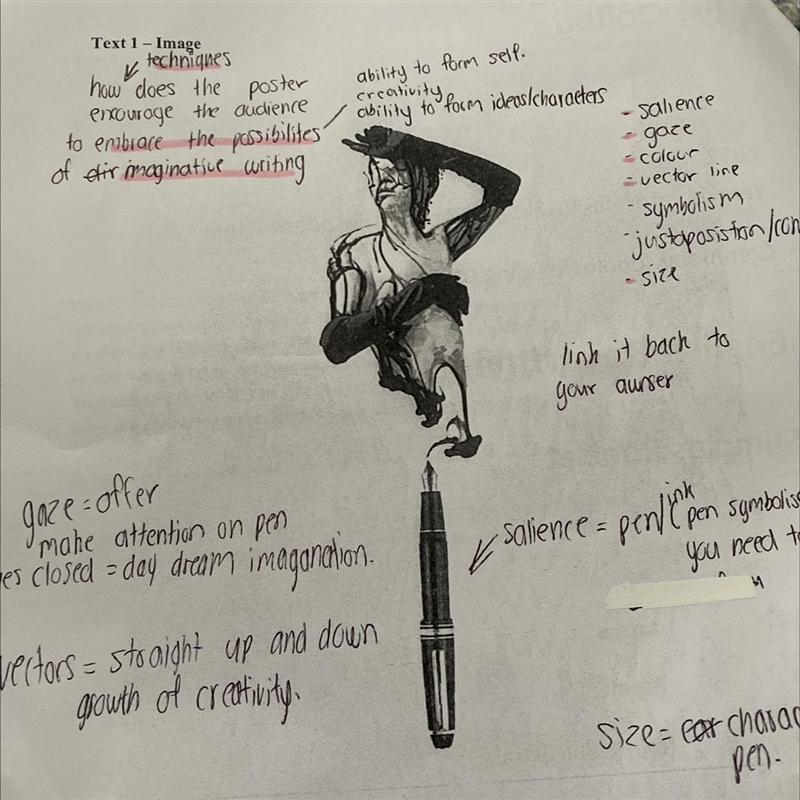 Text 1 – Image
techniques
how does the poster
encourage the audience
to embrace the possibilites
of imaginative writing
ability to form self.
creativity
ability to form ideas/characters
- salience
- gaze
- colour
- vector line
- symbolism
- justaposistion/con
- size
link it back to
your aunser
gaze = offer
make attention on pen
es closed = day dream imaganation.
salience = pen/ink
pen symbolis
you need to
vectors = straight up and down
growth of creativity.
size = charac
pen.